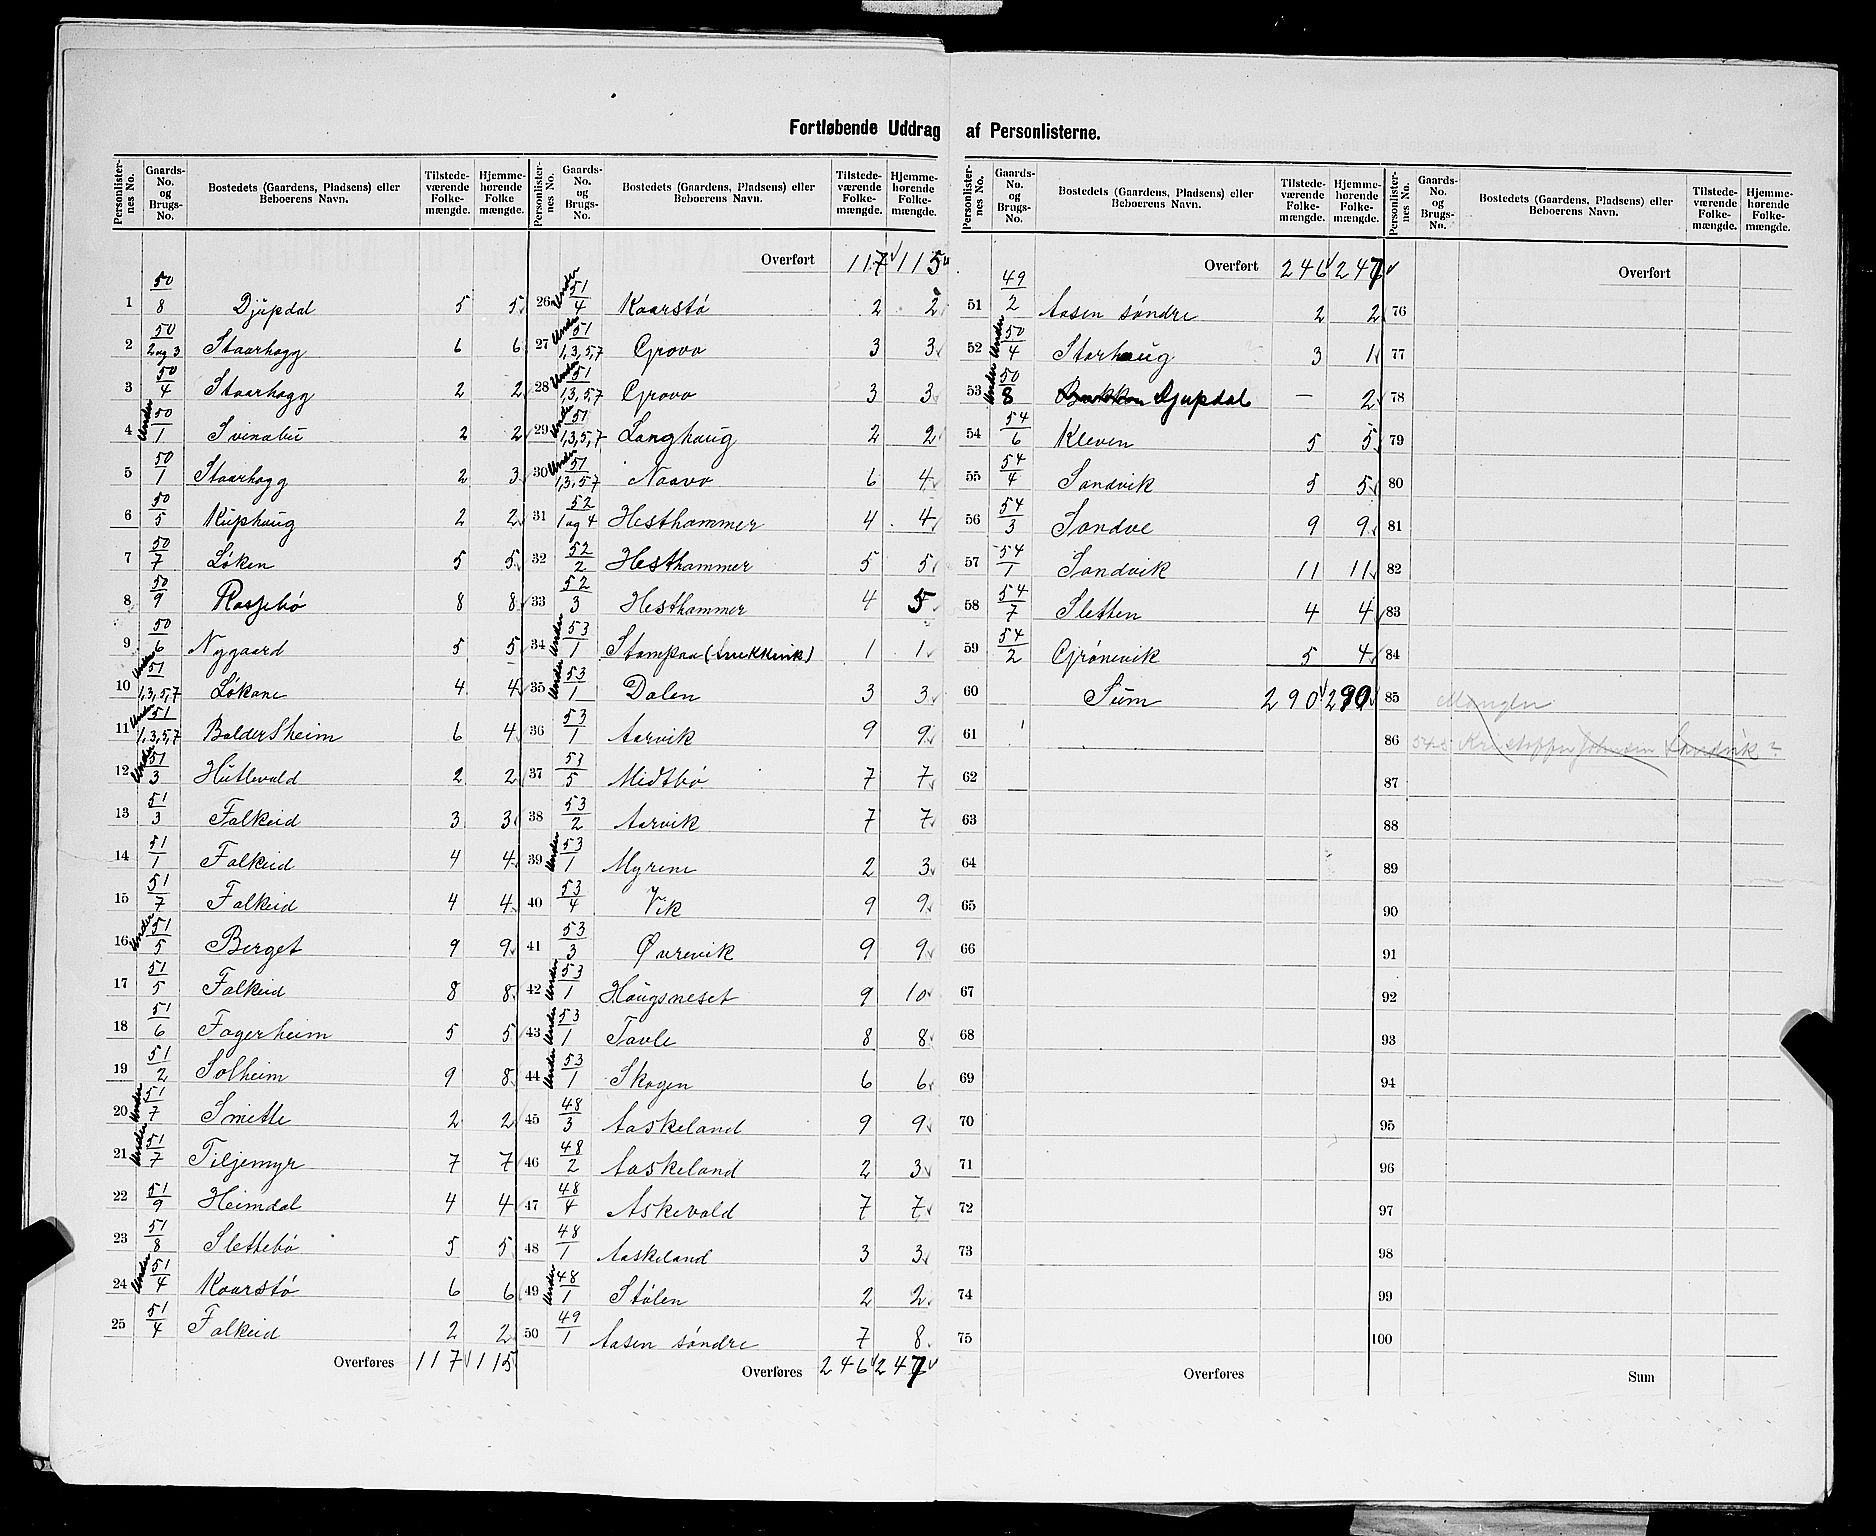 Fortløbende Uddrag af Personlisterne.
Personlister-nes No. | Gaards-No. og Brugs-No. | Bostedets (Gaardens, Pladsens) eller Beboerens Navn. | Tilstede-værende Folke-mængde. | Hjemme-hørende Folke mængde.
1 | 50/8 | Djupdal | 5 | 5
2 | 50/2 og 3 | Staarhagg | 6 | 6
3 | 50/4 | Staarhagg | 2 | 2
4 | Under 50/1 | Svinabu | 2 | 2
5 | 50/1 | Staarhagg | 2 | 3
6 | 50/5 | Kuphaug | 2 | 2
7 | 50/7 | Løken | 5 | 5
8 | 50/9 | Rossebø | 8 | 8
9 | 50/6 | Nygaard | 5 | 5
10 | Under 51/1,3,5,7 | Løkane | 4 | 4
11 | Under 51/1,3,5,7 | Baldersheim | 6 | 4
12 | Under 51/3 | Hultevald | 2 | 2
13 | 51/3 | Falkeid | 3 | 3
14 | 51/1 | Falkeid | 4 | 4
15 | 51/7 | Falkeid | 4 | 4
16 | Under 51/5 | Berget | 9 | 9
17 | 51/5 | Falkeid | 8 | 8
18 | 51/6 | Fagerheim | 5 | 5
19 | 51/2 | Solheim | 9 | 8
20 | Under 51/7 | Smette | 2 | 2
21 | Under 51/7 | Tiljemyr | 7 | 7
22 | 51/9 | Heimdal | 4 | 4
23 | 51/8 | Slettebø | 5 | 5
24 | Under 51/4 | Kaarstø | 6 | 6
25 | 51/4 | Falkeid | 2 | 2
Overføres | 117 | 115
Personlister-nes No. | Gaards-No. og Brugs-No. | Bostedets (Gaardens, Pladsens) eller Beboerens Navn. | Tilstede-værende Folke-mængde. | Hjemme-hørende Folke-mængde.
Overført | 117 | 115
26 | Under 51/4 | Kaarstø | 2 | 2
27 | Under 51/1,3,5,7 | Grova | 3 | 3
28 | Under 51/1,3,5,7 | Grova | 3 | 3
29 | Under 51/1,3,5,7 | Langhaug | 2 | 2
30 | Under 51/1,3,5,7 | Naava | 6 | 4
31 | 52/1 og 4 | Hesthammer | 4 | 4
32 | 52/2 | Hesthammer | 5 | 5
33 | 52/3 | Hesthammer | 4 | 5
34 | Under 53/1 | Stampaa | 1 | 1
35 | Under 53/1 | Dalen | 3 | 3
36 | 53/1 | Aarvik | 9 | 9
37 | 53/5 | Midtbø | 7 | 7
38 | 53/2 | Aarvik | 7 | 7
39 | Under 53/1 | Myrene | 2 | 3
40 | 53/4 | Vik | 9 | 9
41 | 53/3 | Øvrevik | 9 | 9
42 | Under 53/1 | Haugsneset | 9 | 10
43 | Under 53/1 | Tavle | 8 | 8
44 | Under 53/1 | Skogen | 6 | 6
45 | 48/3 | Aaskeland | 9 | 9
46 | 48/2 | Aaskeland | 2 | 3
47 | 48/4 | Askevald | 7 | 7
48 | 48/1 | Aaskeland | 3 | 3
49 | Under 48/1 | Stølen | 2 | 2
50 | 49/1 | Aasen søndre | 7 | 8
Overføres | 246 | 247
Personlister-nes No. | Gaards-No. og Brugs-No. | Bostedets (Gaardens, Pladsens) eller Beboerens Navn. | Tilstede-værende Folke-mængde. | Hjemme-hørende Folke-mængde.
Overført | 246 | 247
51 | 49/2 | Aasen søndre | 2 | 2
52 | Under 50/4 | Starhaug | 3 | 1
53 | Under 50/8 | Bakken Djupdal | — | 2
54 | 54/6 | Kleven | 5 | 5
55 | 54/4 | Sandvik | 5 | 5
56 | 54/3 | Sandve | 9 | 9
57 | 54/1 | Sandvik | 11 | 11
58 | 54/7 | Sletten | 4 | 4
59 | 54/2 | Grønevik | 5 | 4
60 | Sum | 290 | 290
61
62
63
64
65
66
67
68
69
70
71
72
73
74
75
Overføres
Personlister-nes No. | Gaards-No. og Brugs-No. | Bostedets (Gaardens, Pladsens) eller Beboerens Navn. | Tilstede-værende Folke-mængde. | Hjemme-hørende Folke-mængde.
Overført
76
77
78
79
80
81
82
83
84
85 | Mangler
86 | 54.5 Kristoffer Johnsen Sandvik ?
87
88
89
90
91
92
93
94
95
96
97
98
99
100
Sum